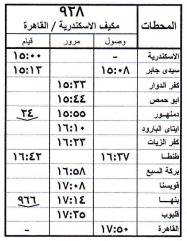 ٩٣٨
مكيف الاسكندرية / القاهرة
المحطات
وصول مرور قيام
الاسكندرية - ١٥:٠٠
سيدى جابر ١٥:٠٨ ١٥:١٣
كفر الدوار ١٥:٣٣
ابو حمص ١٥:٤٤
دمنهور ١٥:٥٥ ٣٤
ايتاى البارود ١٦:١٠
كفر الزيات ١٦:٢٣
طنطا ١٦:٣٧ ١٦:٤٢
بركة السبع ١٦:٥٨
قويسنا ١٧:٠٨
بنها ١٧:١٤ ٩٦٦
قليوب ١٧:٣٥
القاهرة ١٧:٥٠ -